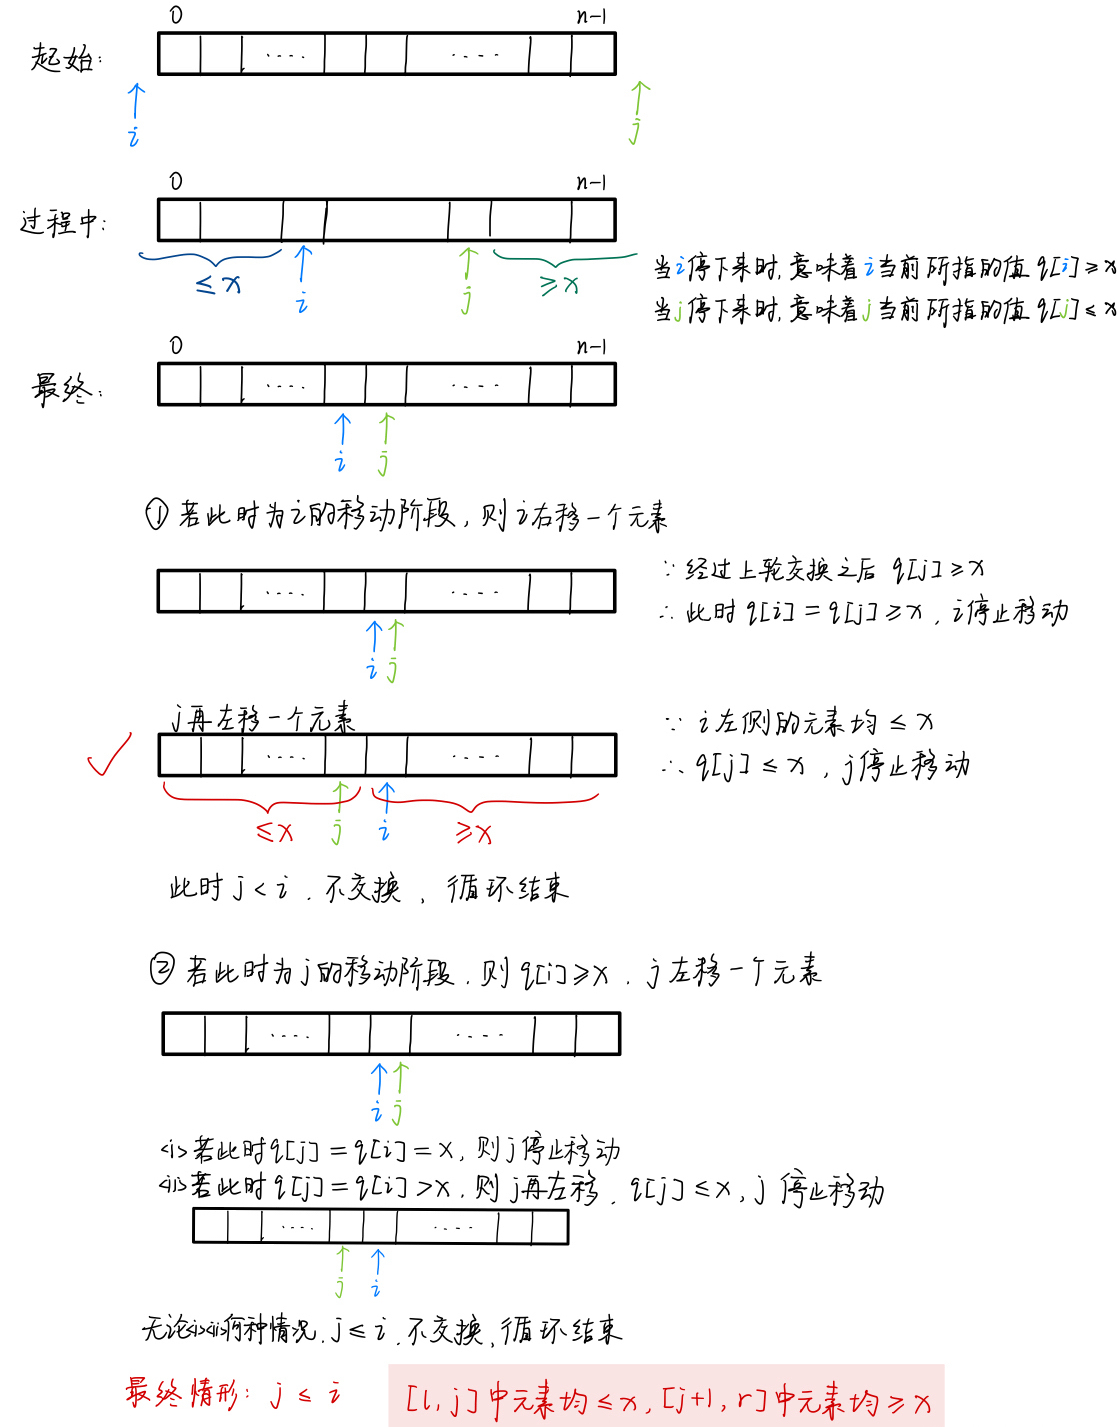 0 n-1
起始:
i j
0 n-1
过程中:
≤x i j ≥x
当i停下来时,意味着i当前所指的值q[i]≥x
当j停下来时,意味着j当前所指的值q[j]≤x
0 n-1
最终:
i j
① 若此时为i的移动阶段,则i右移一个元素
∵经过上轮交换之后 q[j]≥x
∴此时q[i]=q[j]≥x,i停止移动
i j
j再左移一个元素
∵ i左侧的元素均≤x
∴ q[j]≤x,j停止移动
≤x j i ≥x
此时j<i.不交换,循环结束
② 若此时为j的移动阶段.则q[i]≥x.j左移一个元素
i j
<i>若此时q[j]=q[i]=x,则j停止移动
<ii>若此时q[j]=q[i]>x.则j再左移.q[j]≤x,j停止移动
j i
无论<i><ii>何种情况.j≤i.不交换,循环结束
最终情形: j≤i [l,j]中元素均≤x,[j+1,r]中元素均≥x